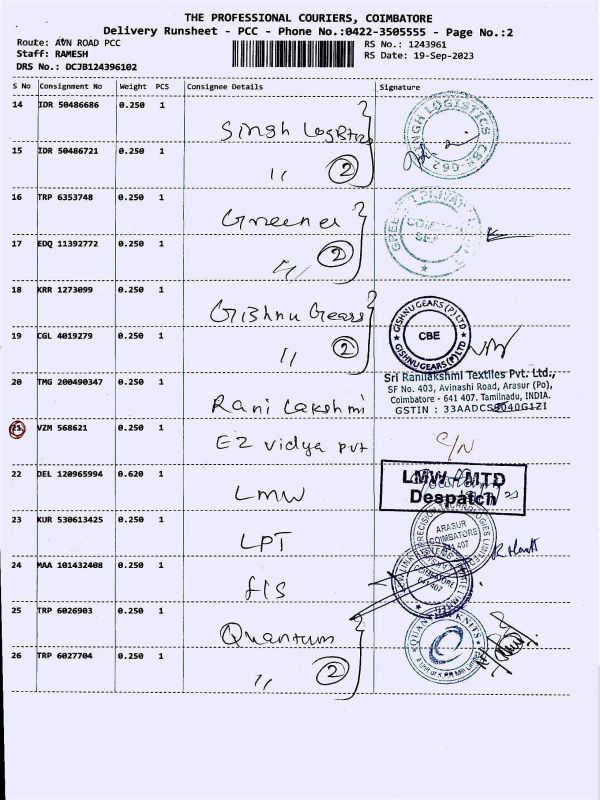 THE PROFESSIONAL COURIERS, COIMBATORE
Delivery Runsheet - PCC - Phone No.:0422-3505555 - Page No.:2
Route: AVN ROAD PCC
RS No.: 1243961
Staff: RAMESH
RS Date: 19-Sep-2023
DRS No.: DCJB124396102
S No Consignment No Weight PCS Consignee Details Signature
14 IDR 50486686 0.250 1
Singh
SINGH LOGISTICS CBE-062
15 IDR 50486721 0.250 1
〃 2
16 TRP 6353748 0.250 1
17 EDQ 11392772 0.250 1
〃 2
18 KRR 1273099 0.250 1
Gishnu Gears
GISHNU GEARS (P) LTD CBE GISHNU GEARS (P) LTD
19 CGL 4019279 0.250 1
〃 2
20 TMG 200490347 0.250 1
Rani Lakshmi
Sri Ranilakshmi Textiles Pvt. Ltd.,
SF No. 403, Avinashi Road, Arasur (Po),
Coimbatore - 641 407. Tamilnadu, INDIA.
GSTIN : 33AADCS
21 VZM 568621 0.250 1
EZ Vidya Pvt
C/N
22 DEL 120965994 0.620 1
LMW
LMW - MTD
Despatch
23 KUR 530613425 0.250 1
LPT
ARASUR
COIMBATORE
641 407
24 MAA 101432408 0.250 1
25 TRP 6026903 0.250 1
Quantum
QUANTUM KNITS
A Unit of K.P.R Mill Limited
26 TRP 6027704 0.250 1
〃 2